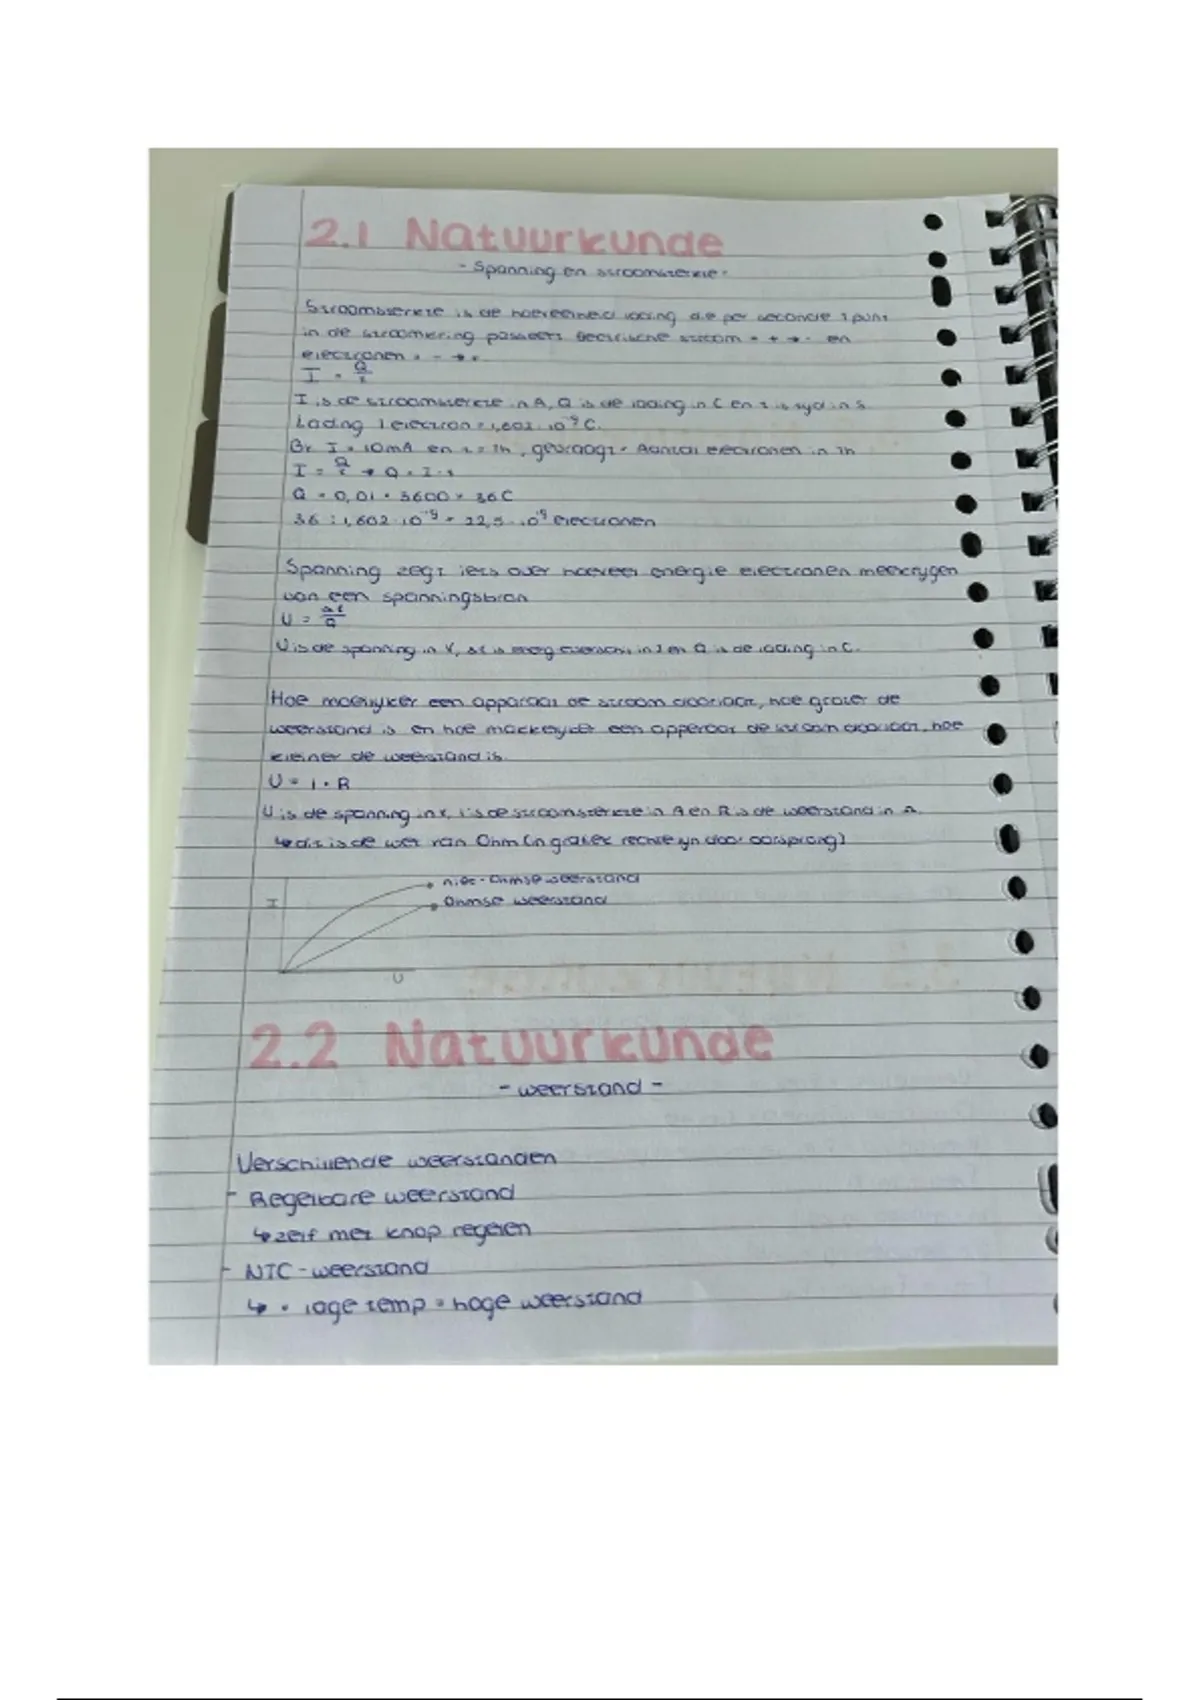 2.1 Natuurkunde
- Spanning en stroomsterkte -
Stroomsterkte is de hoeveelheid lading die per seconde 1 punt
in de stroomkring passeert. Electrische stroom = + → - en
electronen = - → +.
I = Q/t
I is de stroomsterkte in A, Q is de lading in C en t is tijd in s.
Lading 1 electron = 1,602 · 10⁻¹⁹ C.
Bv. I = 10mA en t = 1h, gevraagt = Aantal electronen in 1h
I = Q/t → Q = I · t
Q = 0,01 · 3600 = 36 C
36 : 1,602 · 10⁻¹⁹ = 22,5 · 10¹⁹ electronen
Spanning zegt iets over hoeveel energie electronen meekrijgen
van een spanningsbron
U = ΔE/Q
U is de spanning in V, ΔE is in J en Q is de lading in C.
Hoe moeilijker een apparaat de stroom doorlaat, hoe groter de
weerstand is en hoe makkelijker een apperaat de stroom doorlaat, hoe
kleiner de weerstand is.
U = I · R
U is de spanning in V, I is de stroomsterkte in A en R is de weerstand in Ω.
↳ dit is de wet van Ohm (in grafiek rechte lijn door oorsprong)
niet-Ohmse weerstand
I
Ohmse weerstand
U
2.2 Natuurkunde
- weerstand -
Verschillende weerstanden
- Regelbare weerstand
↳ zelf met knop regelen
- NTC-weerstand
↳ • lage temp = hoge weerstand